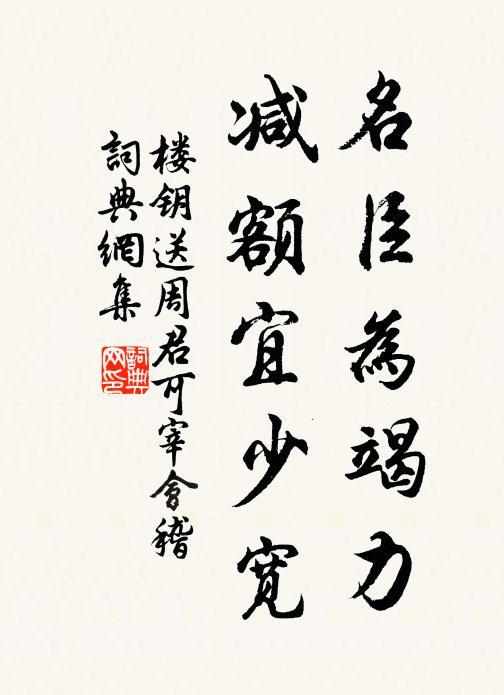 名臣為竭力
减额宜少宽
楼钥送周君可宰會稽
詞典網集
詞典
网印